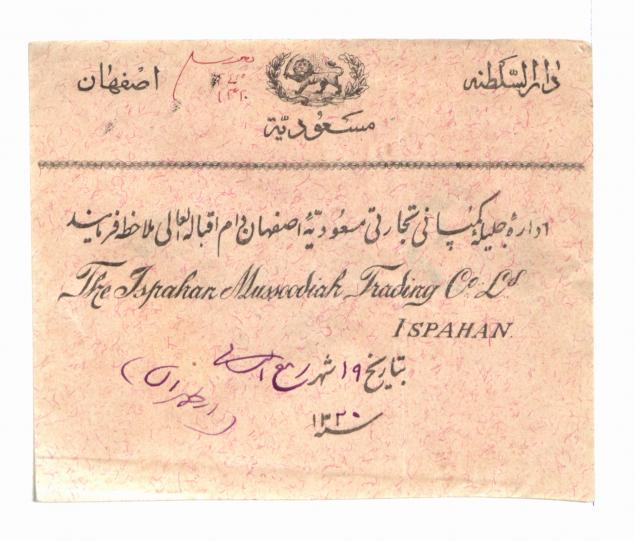 دارالسلطنه اصفهان
مسعودیّة
ادارهٔ جلیله کمپانی تجارتی مسعودیّهٔ اصفهان دام اقباله العالی ملاحظه فرمایند
The Ispahan Mussoodiah Trading Co. Ld
ISPAHAN.
بتاریخ ۱۹ شهر ربیع
(از طهران)
سنه ۱۳۲۰